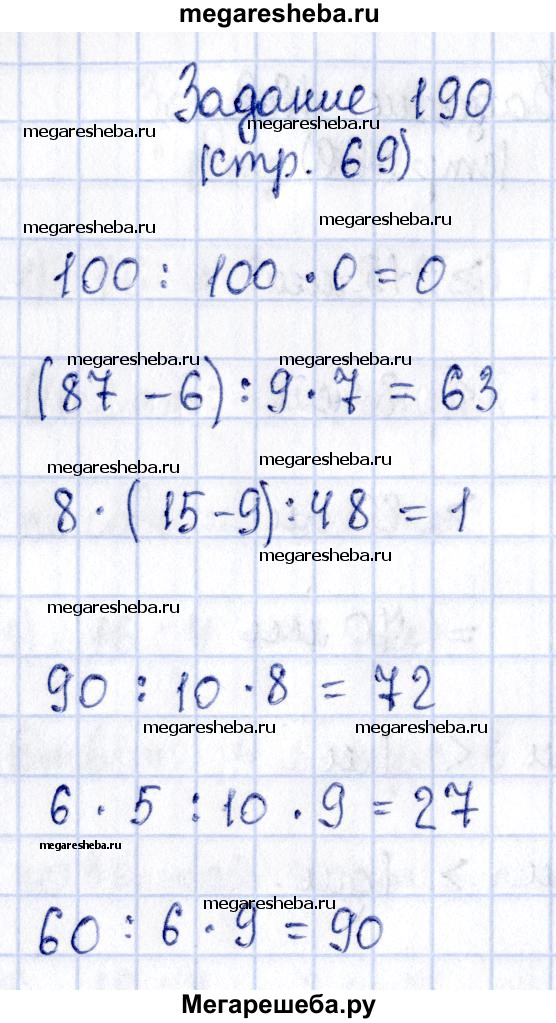 megaresheba.ru
Задание 190
megaresheba.ru megaresheba.ru
(стр. 69)
megaresheba.ru megaresheba.ru
100 : 100 · 0 = 0
megaresheba.ru megaresheba.ru
(87 - 6) : 9 · 7 = 63
megaresheba.ru megaresheba.ru
8 · (15 - 9) : 48 = 1
megaresheba.ru
megaresheba.ru
90 : 10 · 8 = 72
megaresheba.ru megaresheba.ru
6 · 5 : 10 · 9 = 27
megaresheba.ru
megaresheba.ru
60 : 6 · 9 = 90
Мегарешеба.ру